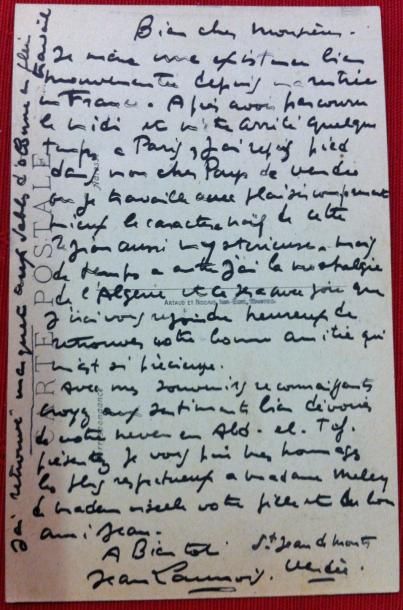 Bien cher Monsieur.
Je mène une existence bien
mouvementée depuis ma rentrée
en France. Après avoir parcouru
le midi et m'être arrêté quelque
temps a Paris, j'ai repris pied
dans mon cher Pays de Vendée
où je travaille avec plaisir comprenant
mieux le caractère naïf de cette
région aussi mystérieuse. mais
de temps a autre j'ai la nostalgie
de l'Algérie et ce sera avec joie que
j'irai vous rejoindre heureux de
retrouver votre bonne amitié qui
m'est si précieuse.
Avec mes souvenirs reconnaissants
croyez aux sentiments bien dévoués
de votre neveu en Abd. el. Tif.
présentez je vous prie mes hommages
les plus respectueux a madame
à mademoiselle votre fille et au bon
ami Jean.
A Bientôt
St Jean de Monts
Vendée.
Jean Launois.
J'ai retrouvé aux Sables d'Olonne en plein travail
CARTE POSTALE
Correspondance
Adresse
ARTAUD ET NOZAIS